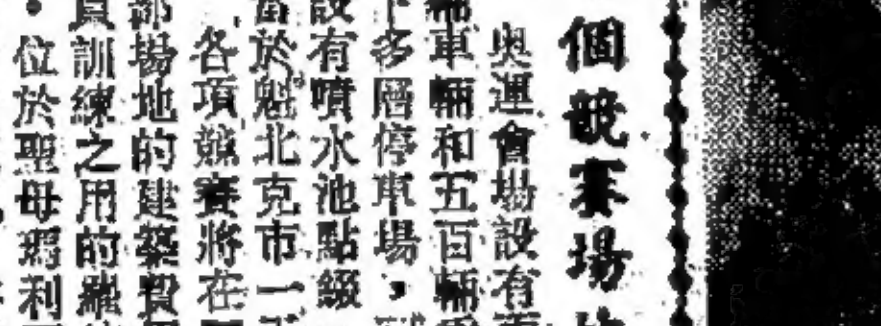 個競賽場
奧運會場設有
車輛和五百輛
多層停車場，
設有噴水池點綴
當於魁北克市一
各項競賽將在
部場地的建築費
員訓練之用的
。位於聖母瑪利